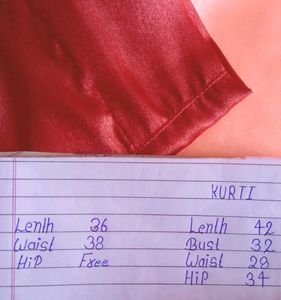 KURTI
Lenth 36 Lenth 42
Waist 38 Bust 32
HiP Free Waist 28
HiP 34